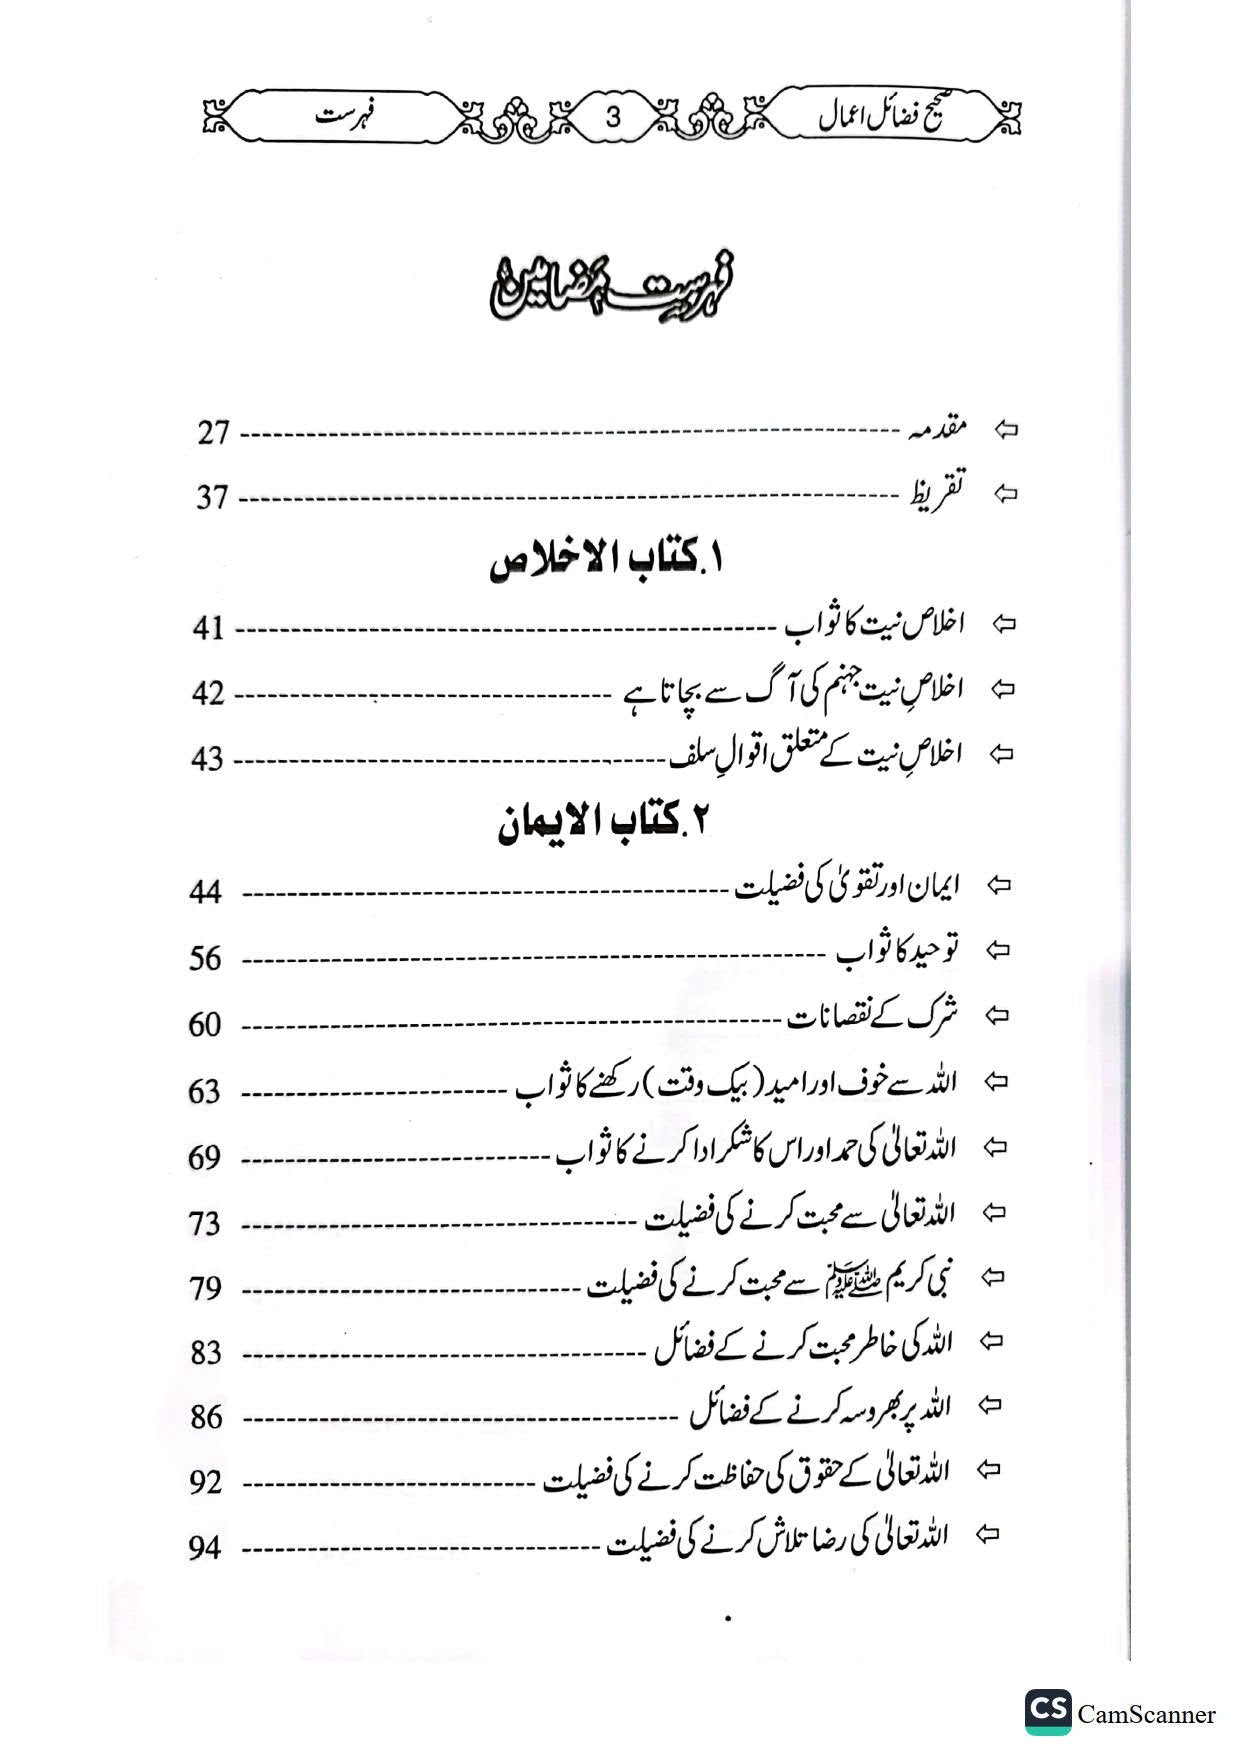 صحیح فضائل اعمال 3 فہرست
فہرست مضامین
مقدمہ ------------------------------------------------------------ 27
تقریظ ------------------------------------------------------------ 37
۱. کتاب الاخلاص
اخلاص نیت کا ثواب ------------------------------------------------- 41
اخلاصِ نیت جہنم کی آگ سے بچاتا ہے ---------------------------------- 42
اخلاصِ نیت کے متعلق اقوالِ سلف --------------------------------------- 43
۲. کتاب الایمان
ایمان اور تقویٰ کی فضیلت -------------------------------------------- 44
توحید کا ثواب ----------------------------------------------------- 56
شرک کے نقصانات ------------------------------------------------- 60
اللہ سے خوف اور امید (بیک وقت) رکھنے کا ثواب ------------------------ 63
اللہ تعالیٰ کی حمد اور اس کا شکر ادا کرنے کا ثواب ---------------------------- 69
اللہ تعالیٰ سے محبت کرنے کی فضیلت ------------------------------------ 73
نبی کریم ﷺ سے محبت کرنے کی فضیلت ------------------------------- 79
اللہ کی خاطر محبت کرنے کے فضائل ------------------------------------- 83
اللہ پر بھروسہ کرنے کے فضائل --------------------------------------- 86
اللہ تعالیٰ کے حقوق کی حفاظت کرنے کی فضیلت --------------------------- 92
اللہ تعالیٰ کی رضا تلاش کرنے کی فضیلت --------------------------------- 94
CS CamScanner